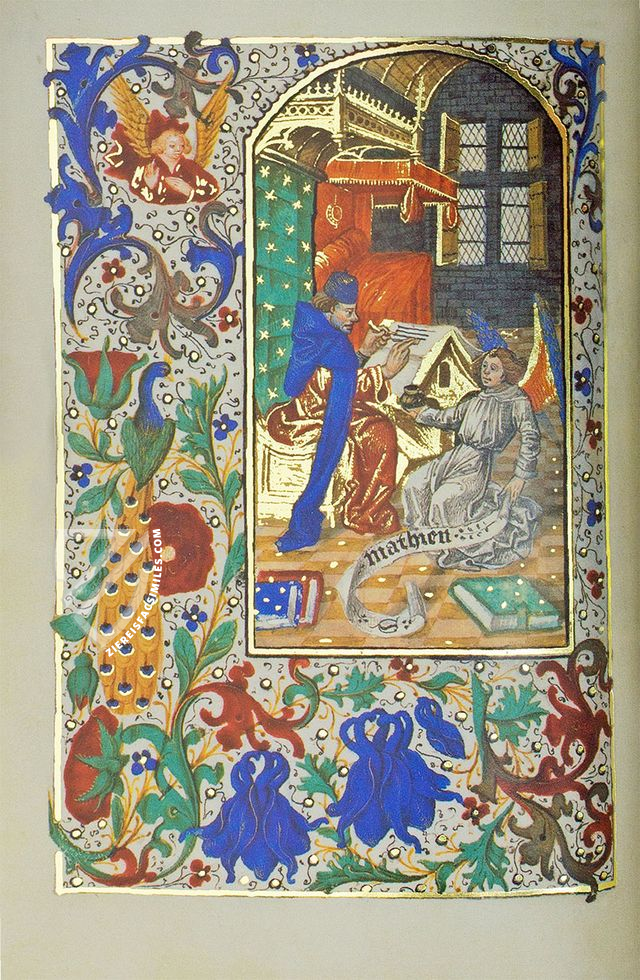 mathieu
ZIEREISFACSIMILES.COM